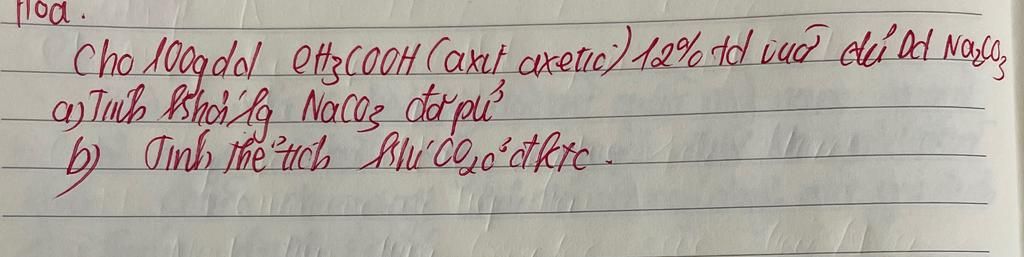 Hoá.
Cho 100g dd CH3COOH (axit axetic) 12% td vừa đủ Dd Na2CO3
a) Tính khối lg NaCO3 đã pứ
b) Tính thể tích khí CO2 ở đktc.